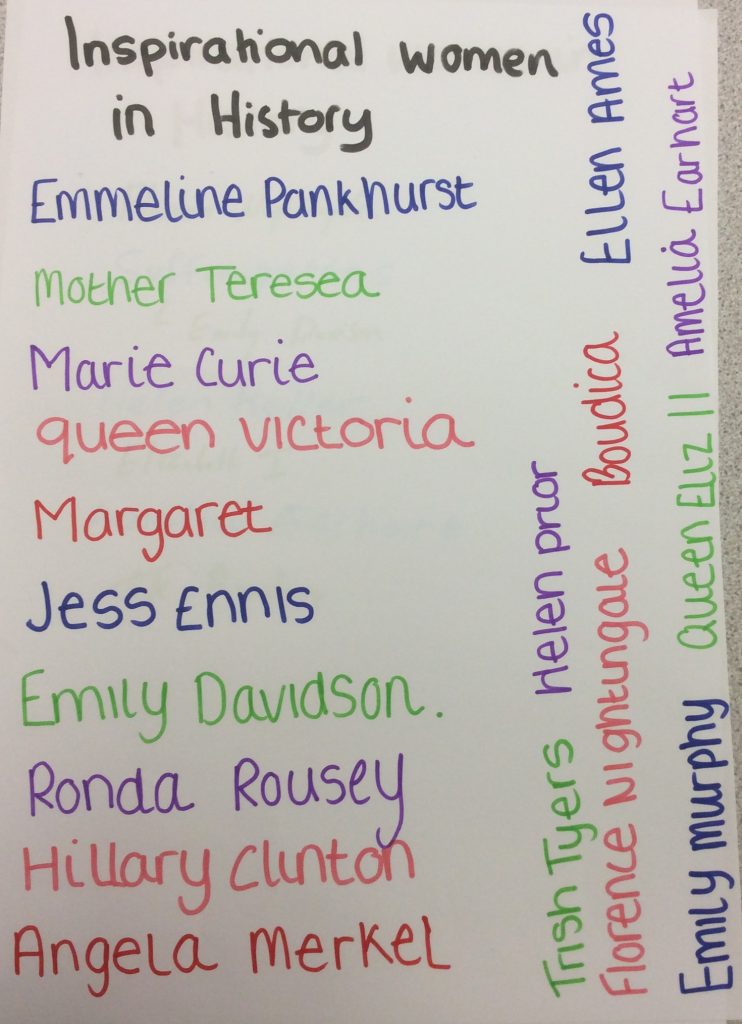 Inspirational women
in History
Emmeline Pankhurst
Mother Teresea
Marie Curie
queen victoria
Margaret
Jess Ennis
Emily Davidson.
Ronda Rousey
Hillary Clinton
Angela Merkel
Trish Tyers
Helen prior
Florence Nightungale
Boudica
Ellen Ames
Emily Murphy
Queen Eliz II
Amelia Earhart